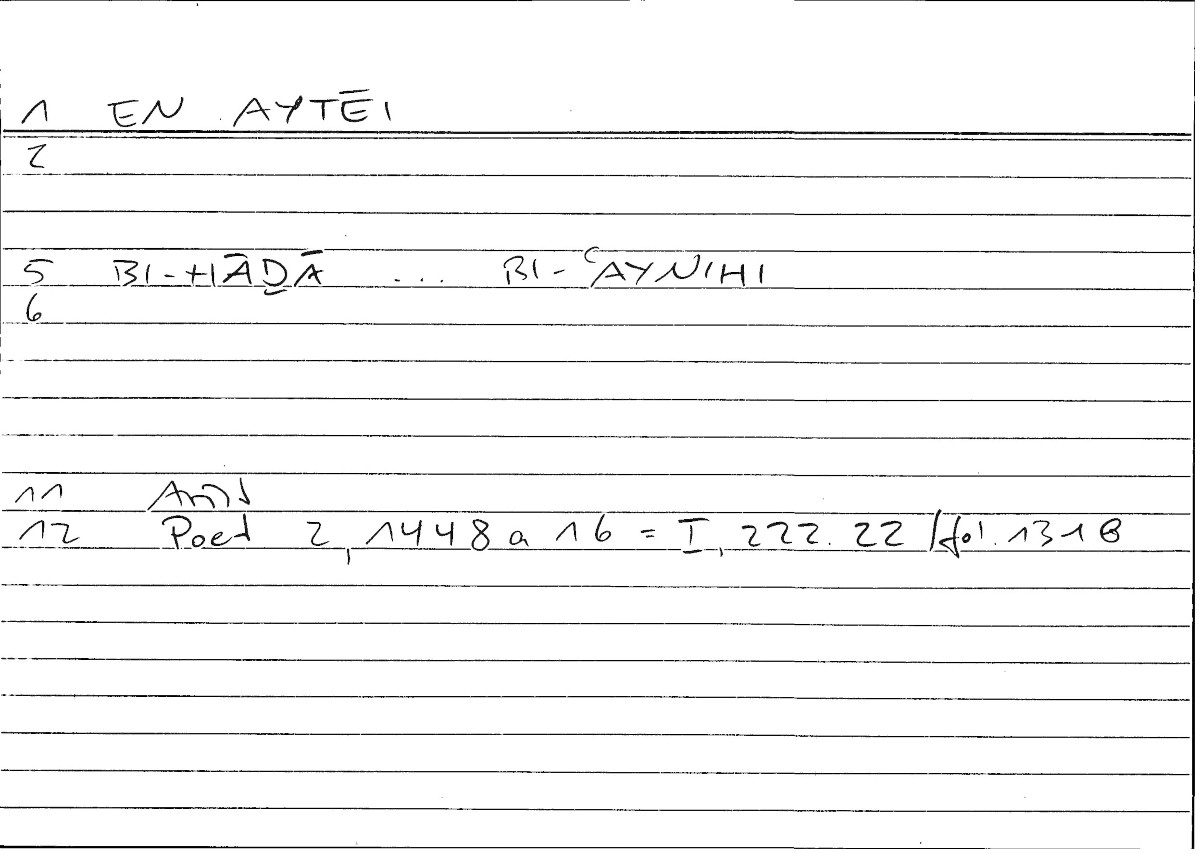 1 EN AYTĒI
2
5 BI-HĀḎĀ ... BI-ʿAYNIHI
6
11 Arist
12 Poet 2, 1448 a 16 = I, 222.22 / fol. 131 B